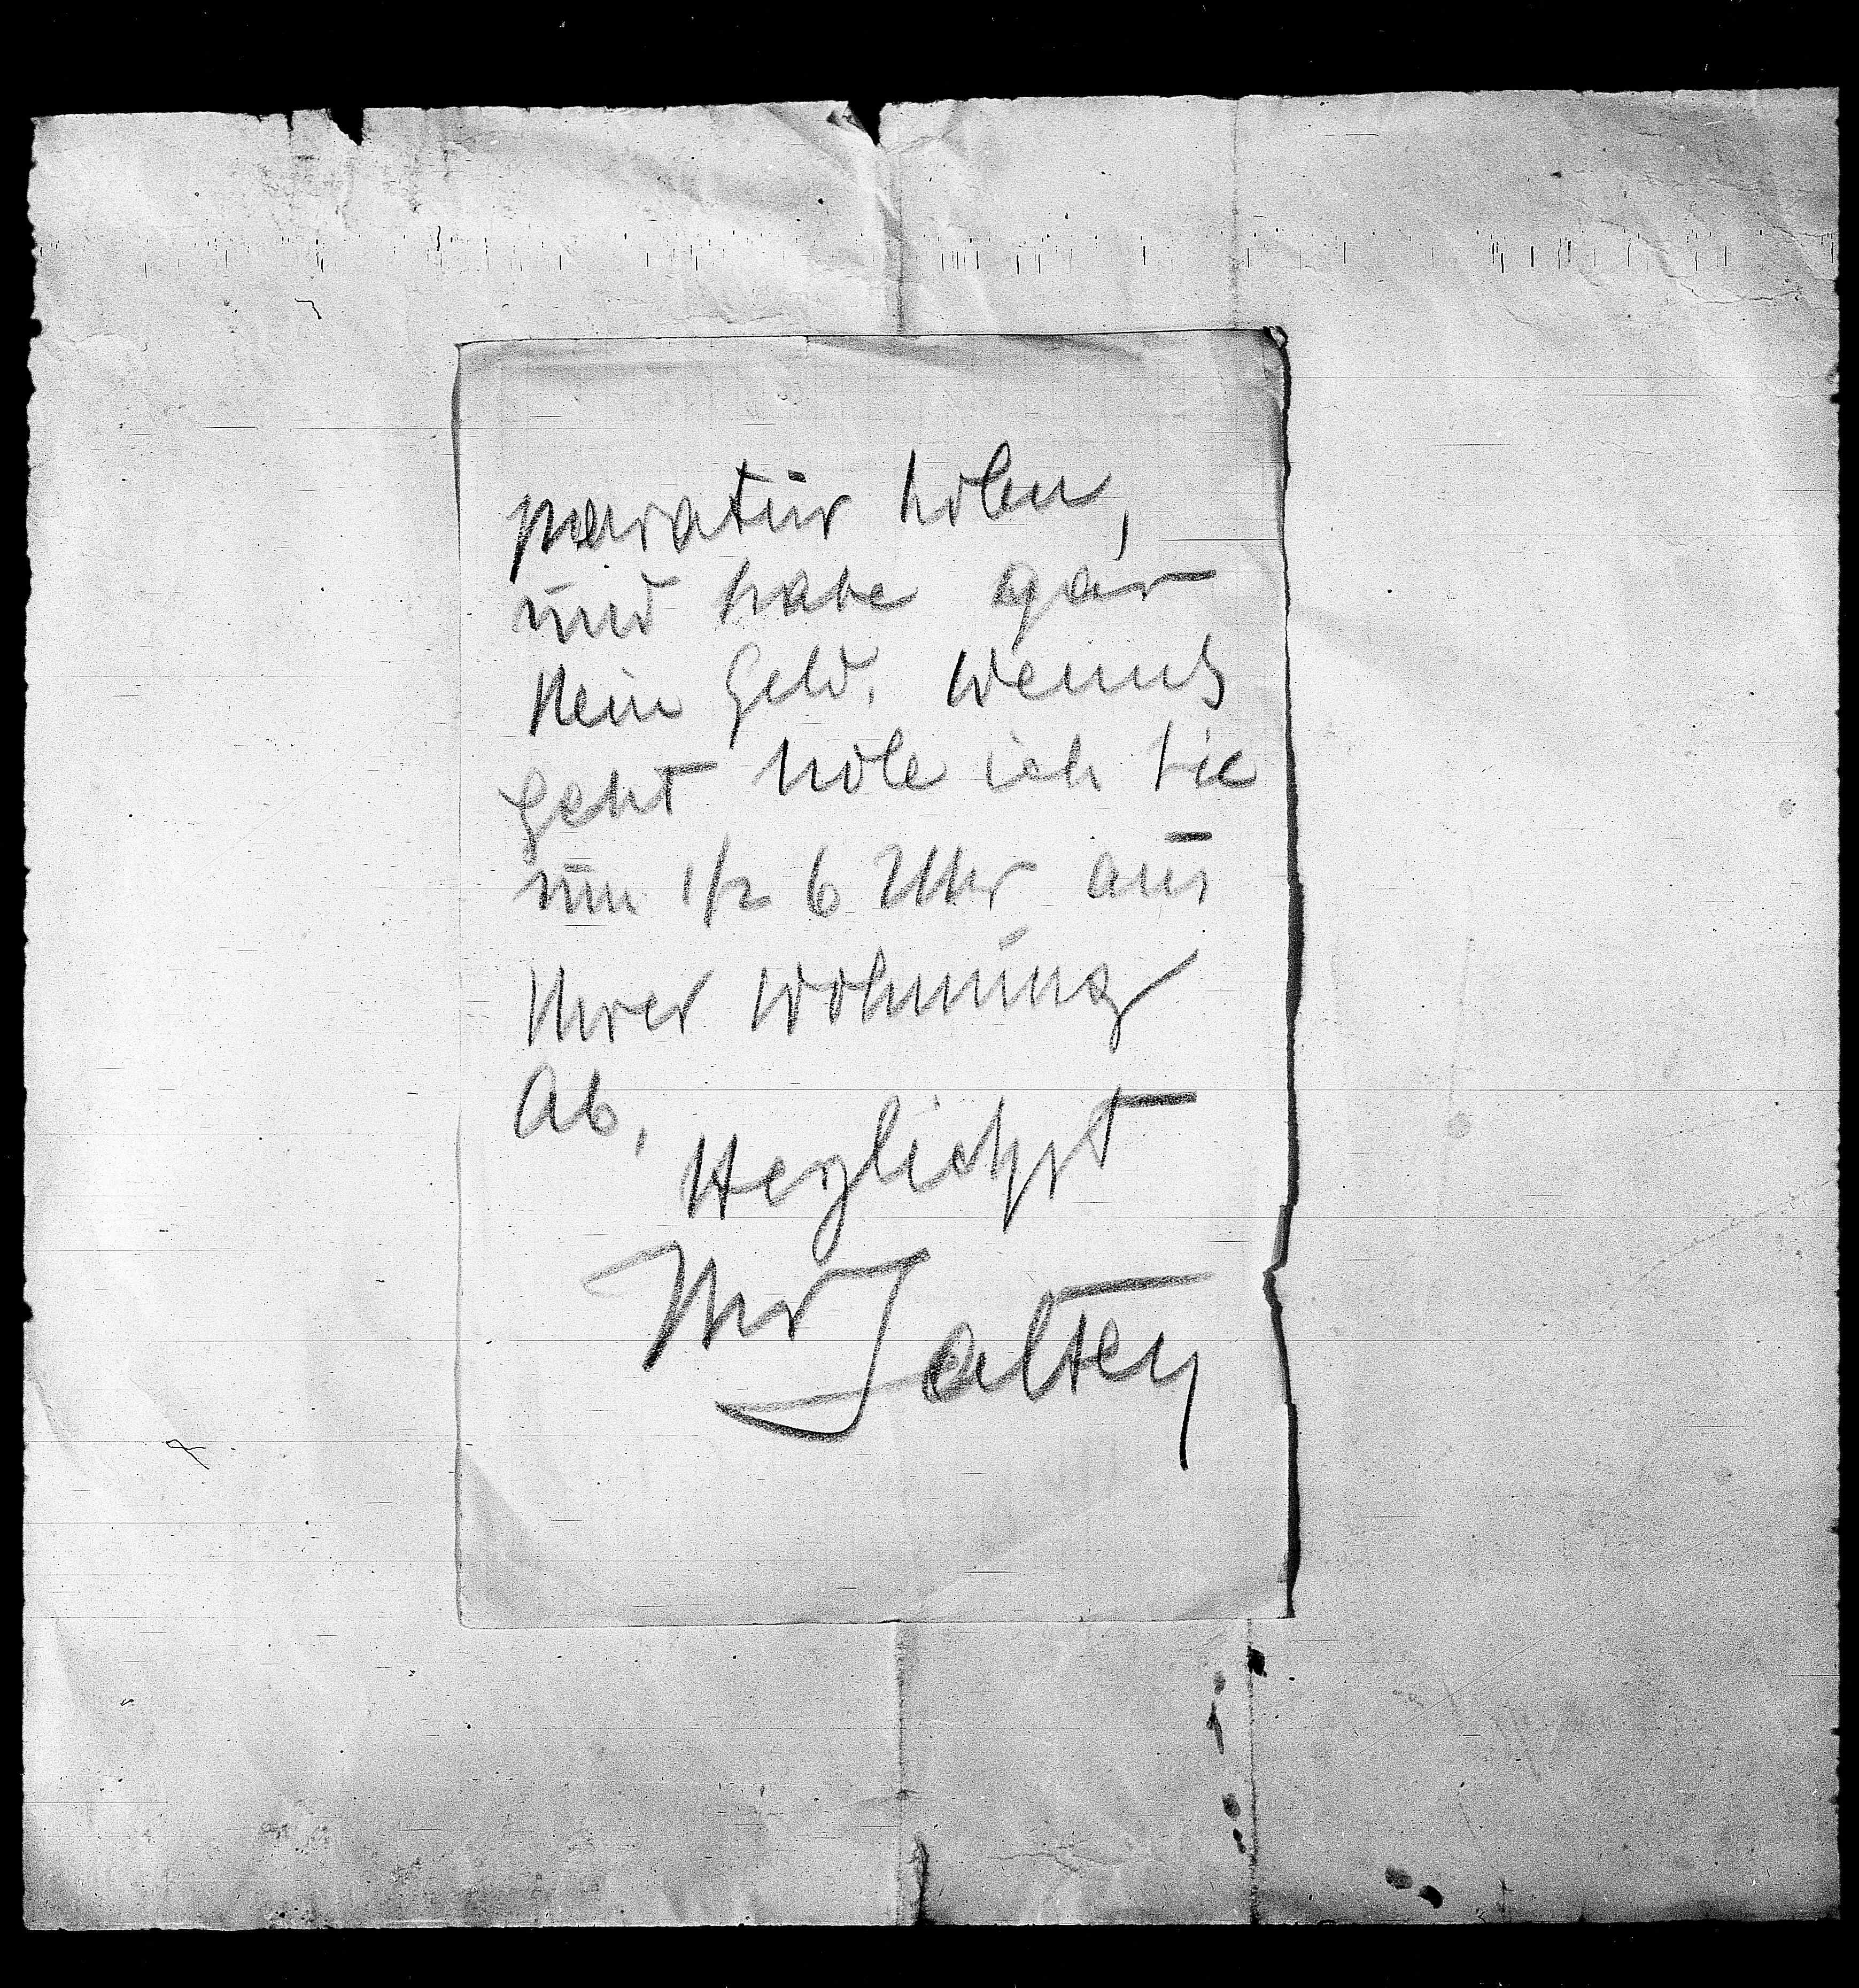 paratur holen,
und habe gar
kein Geld. Wenns
geht hole ich Sie
um 1/2 6 Uhr aus
Ihrer Wohnung
ab.
Herzlichst
Ihr Salten